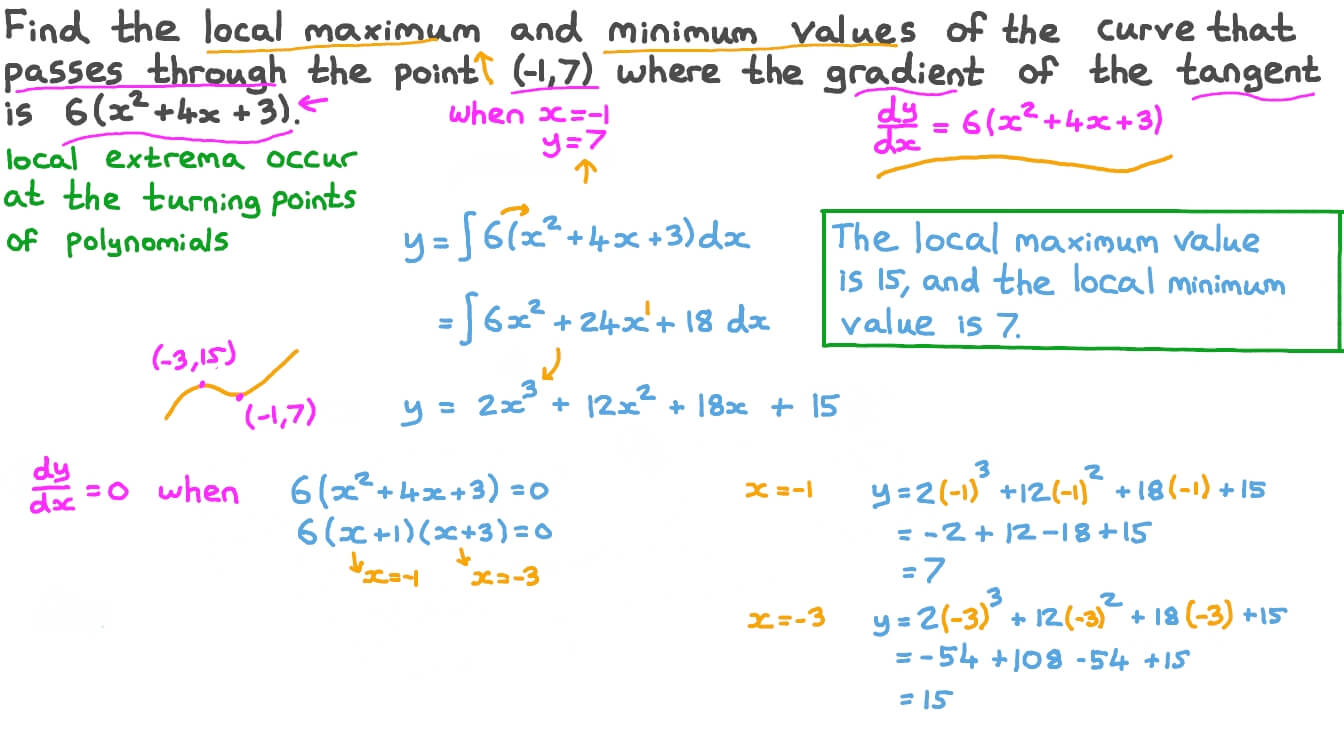 Find the local maximum and minimum values of the curve that
passes through the point (-1,7) where the gradient of the tangent
is 6(x²+4x+3).
when x=-1
y=7
dy/dx = 6(x²+4x+3)
local extrema occur
at the turning points
of polynomials
y = ∫6(x²+4x+3)dx
= ∫6x²+24x¹+18 dx
y = 2x³ + 12x² + 18x + 15
The local maximum value
is 15, and the local minimum
value is 7.
(-3,15)
(-1,7)
dy/dx = 0 when 6(x²+4x+3)=0
6(x+1)(x+3)=0
x=-1 x=-3
x=-1 y=2(-1)³+12(-1)²+18(-1)+15
= -2+12-18+15
= 7
x=-3 y=2(-3)³+12(-3)²+18(-3)+15
= -54+108-54+15
= 15